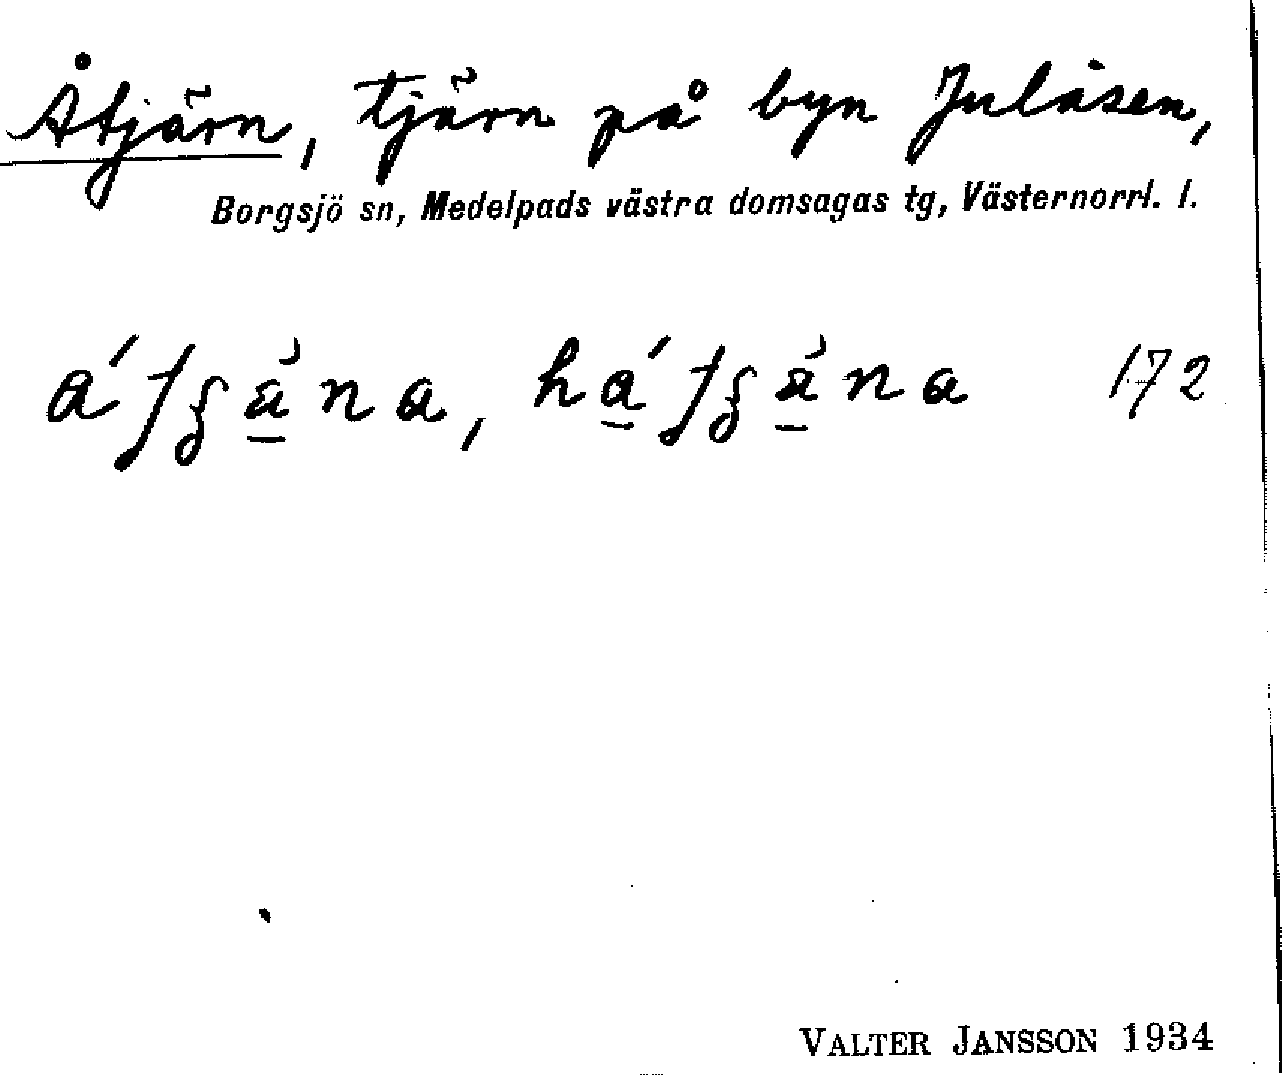 Åtjärn, tjärn på byn Julåsen,
Borgsjö sn, Medelpads västra domsagas tg, Västernorrl. l.
172
VALTER JANSSON 1934